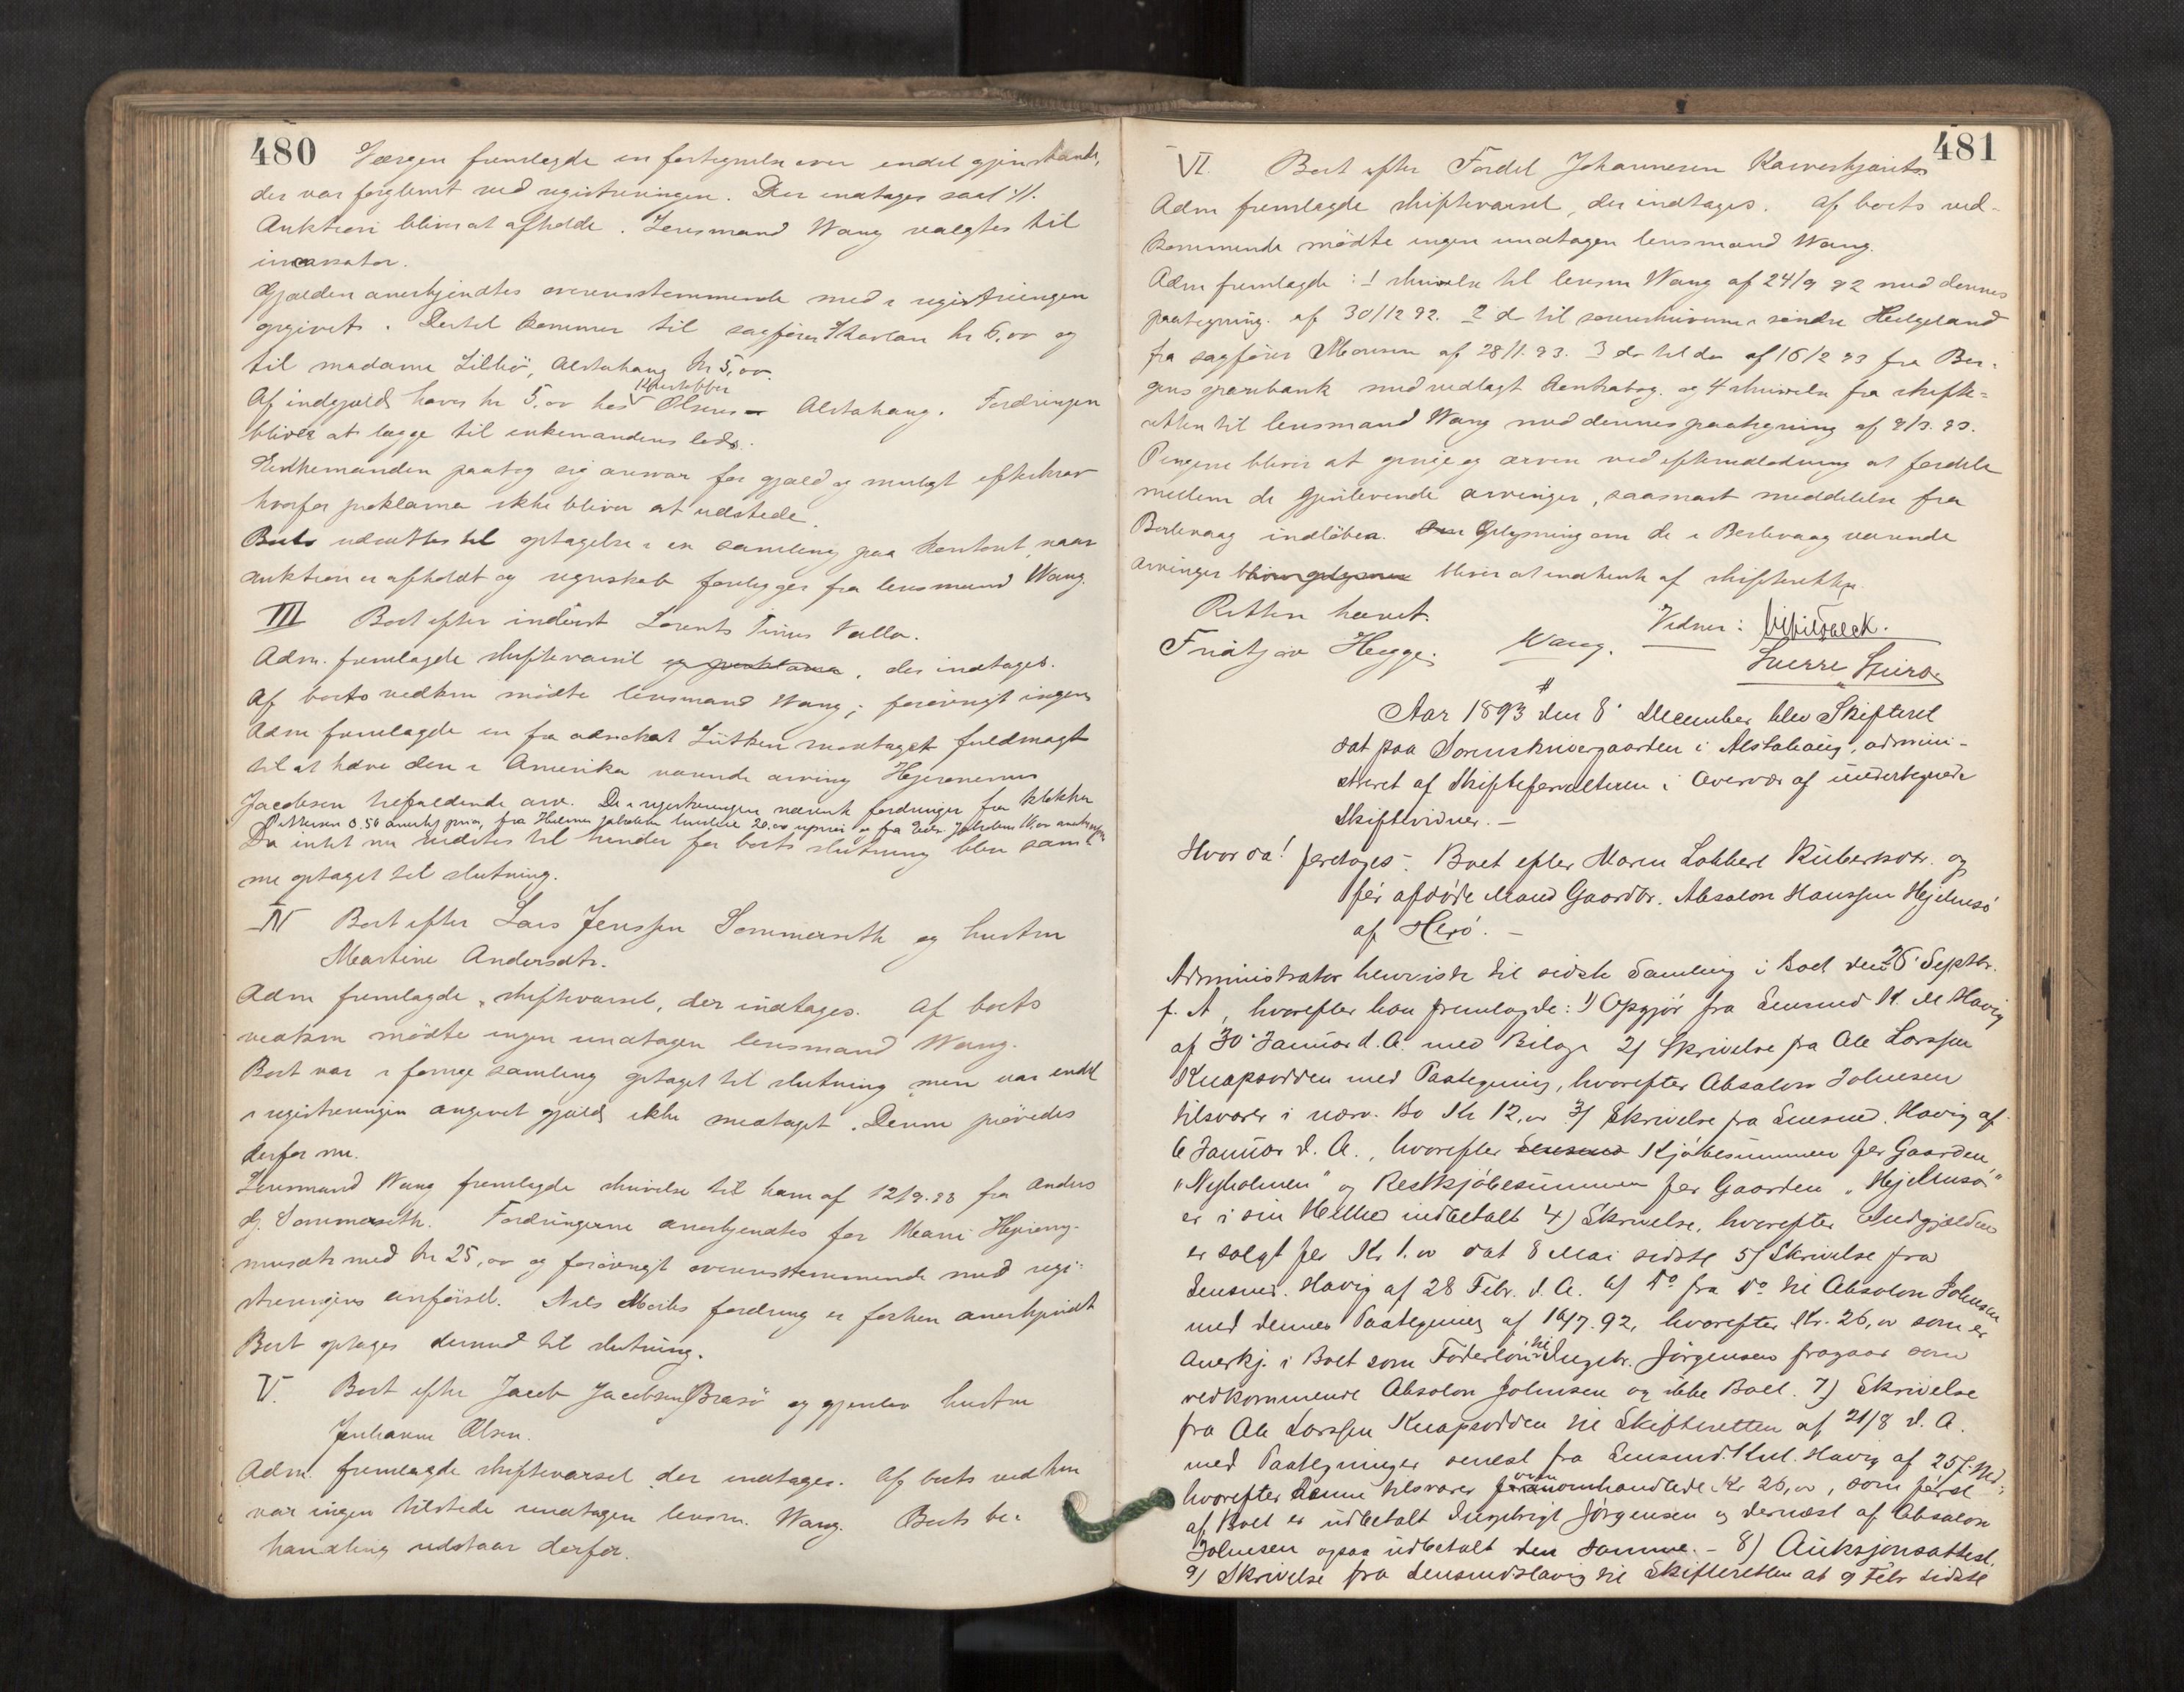 480
Værgen fremlagde en fortegnelse over endel gjenstande,
der var forglemt ved registreringen. Den indtages saal. 11.
Auktion bliver at afholde. Lensmand Wang valgtes til
incassator.
Gjælden anerkjendtes overensstemmende med i registreringen
opgivet. Dertil kommer til sagfører Skavlan kr 6,00 og
til madame Lilbö, Alstahaug kr 5,00.
Af indgjæld haves kr 5,00 hos Olsen Alstahaug. Fordringen
bliver at lægge til enkemandens lod.
Enkemanden paatog sig ansvar for gjæld og muligt efterkrav
hvorfor proklama ikke bliver at udstede.
Boet udsættes til optagelse i en samling paa kontoret, naar
auktion er afholdt og regnskab foreligger fra lensmand Wang.
III Boet efter inderst Lorents Tinus Valla.
Adm. fremlagde skiftevarsel og proklama, der indtages.
Af boets vedkm mödte lensmand Wang; forövrigt ingen
Adm fremlagde en fra advokat Lütken modtaget fuldmagt
til at hæve den i Amerika værende arving Hejeronemus
Jacobsen tilfaldende arv. De i registreringen nævnte fordringer fra klokker
Pettersen 0.50 anerkj
Da intet nu vidstes til hinder for boets slutning blev sam-
me optaget til slutning.
IV Boet efter Lars Jenssen Sommerseth og hustru
Martine Andersdtr.
Adm fremlagde skiftevarsel, der indtages. Af boets
vedkm mödte ingen undtagen lensmand Wang.
Boet var i forrige samling optaget til slutning men var endel
i registreringen angivet gjæld ikke medtaget. Denne prövedes
derfor nu.
Lensmand Wang fremlagde skrivelse til ham af 12/9.93 fra Anders
G. Sommerseth. Fordringerne anerkjendtes for Marie Hejerony-
musdtr med kr 25,00 og forövrigt overensstemmende med regi-
streringens anförsel. Nils Moibs fordring er forhen anerkjendt
Boet optages dermed til slutning.
V. Boet efter Jacob Jacobsen Brasö og gjenlev hustru
Johanne Olsen.
Adm. fremlagde skiftevarsel der indtages. Af boets vedkm
var ingen tilstede undtagen lensm. Wang. Boets be-
handling udstaar derfor.
481
VI. Boet efter Fordel Johannesen
Adm fremlagde skiftevarsel, der indtages. Af boets ved-
kommende mödte ingen undtagen lensmand Wang.
Adm fremlagde: 1 skrivelse til lensm Wang af 24/9 92 med dennes
paategning af 30/12 92. 2 do til sorenskriveren i söndre Helgeland
fra sagförer Mousen af 28/1.93. 3 do til do af 16/2 93 fra Ber-
gens sparebank med vedlagt kontrabog. og 4 skrivelse fra skifte-
retten til lensmand Wang med dennes paategning af 9/3.93.
Pengene bliver at og arven ved efterudlodning at fordele
mellem de gjenlevende arvinger, saasnart meddelelse fra
Berlevaag indlöber. Oplysning om de i Berlevaag værende
arvinger bliver at indhente af skifteretten.
Retten hævet.
Fridtjov Hegge. Wang. Vidner:
Sverre
Aar 1893 den 8 December blev Skifteret
sat paa Sorenskrivergaarden i Alstahaug, admini-
streret af Skifteforvalteren i Overvær af undertegnede
Skiftevidner. –
Hvor da! foretoges – Boet efter Maren Lobbert Rubertsdtr. og
för afdöde Mand Gaardbr. Absalon Hanssen Hjelmsö
af Herö. –
Administrator henviste til sidste Samling i Boet den 26 Septbr.
f. A, hvorefter han fremlagde: 1) Opgjör fra Lensmd K. M Havig
af 30 Januar d. A. med Bilage 2) Skrivelse fra Ole Larssen
Knapsodden med Paategning, hvorefter Absalon Johnsen
tilsvarer i nærv. Bo Kr 12,00 3) Skrivelse fra Lensmd. Havig af
6 Januar d. A., hvorefter Lensmd Kjöbesummen for Gaarden
"Nyholmen" og Restkjöbesummen for Gaarden "Hjelmsö"
er i sin Helhed indbetalt 4) Skrivelse, hvorefter Indgjælden
er solgt for Kr 1.00 dat 8 Mai sidste 5) Skrivelse fra
Lensmd. Havig af 28 Febr. d. A. 6) Do fra Do til Absalon Johnsen
med dennes Paategning af 16/7.92, hvorefter Kr. 26,00 som er
Anerkj. i Boet som Foderlön til Ingebr. Jörgensen fragaar som
vedkommende Absalon Johnsen og ikke Boet. 7) Skrivelse
fra Ole Larssen Knapsodden til Skifteretten af 21/8 d. A.
med Paategninger senest fra Lensmd. Havig af 25 f. Md.,
hvorefter denne tilsvarer ovenomhandlede Kr 26,00, som först
af Boet er udbetalt Ingebrigt Jörgensen og dernæst af Absalon
Johnsen ogsaa udbetalt den samme. – 8) Auksjonsattest.
9) Skrivelse fra Lensmd Havig til Skifteretten af 9 Febr sidste